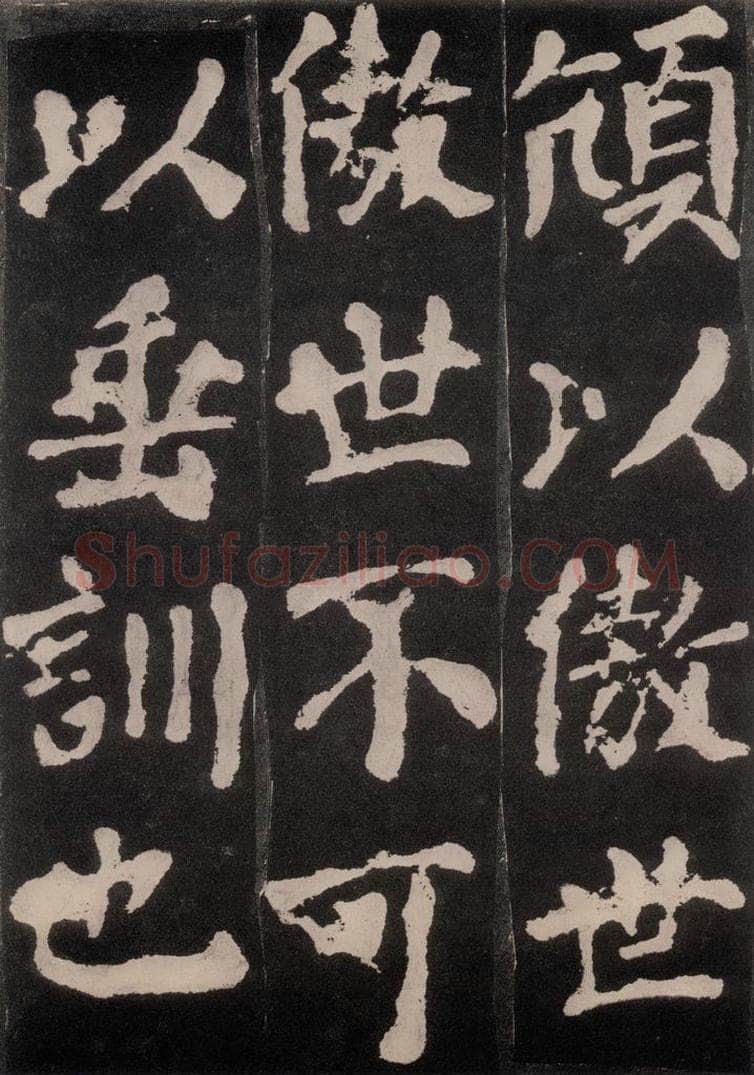 頏以傲世
傲世不可
以垂訓也
Shufaziliao.COM